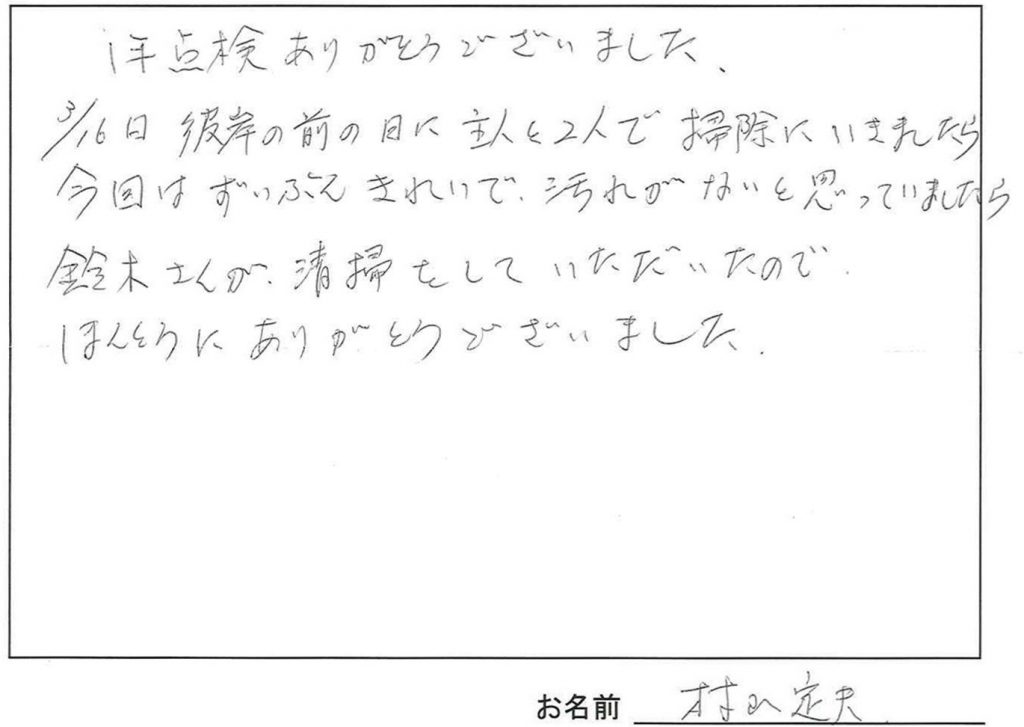 1年点検ありがとうございました、
3/16日 彼岸の前の日に主人と2人で掃除にいきましたら
今回はずいぶんきれいで、汚れがないと思っていましたら
鈴木さんが、清掃をしていただいたので、
ほんとうにありがとうございました。
お名前 村山定夫